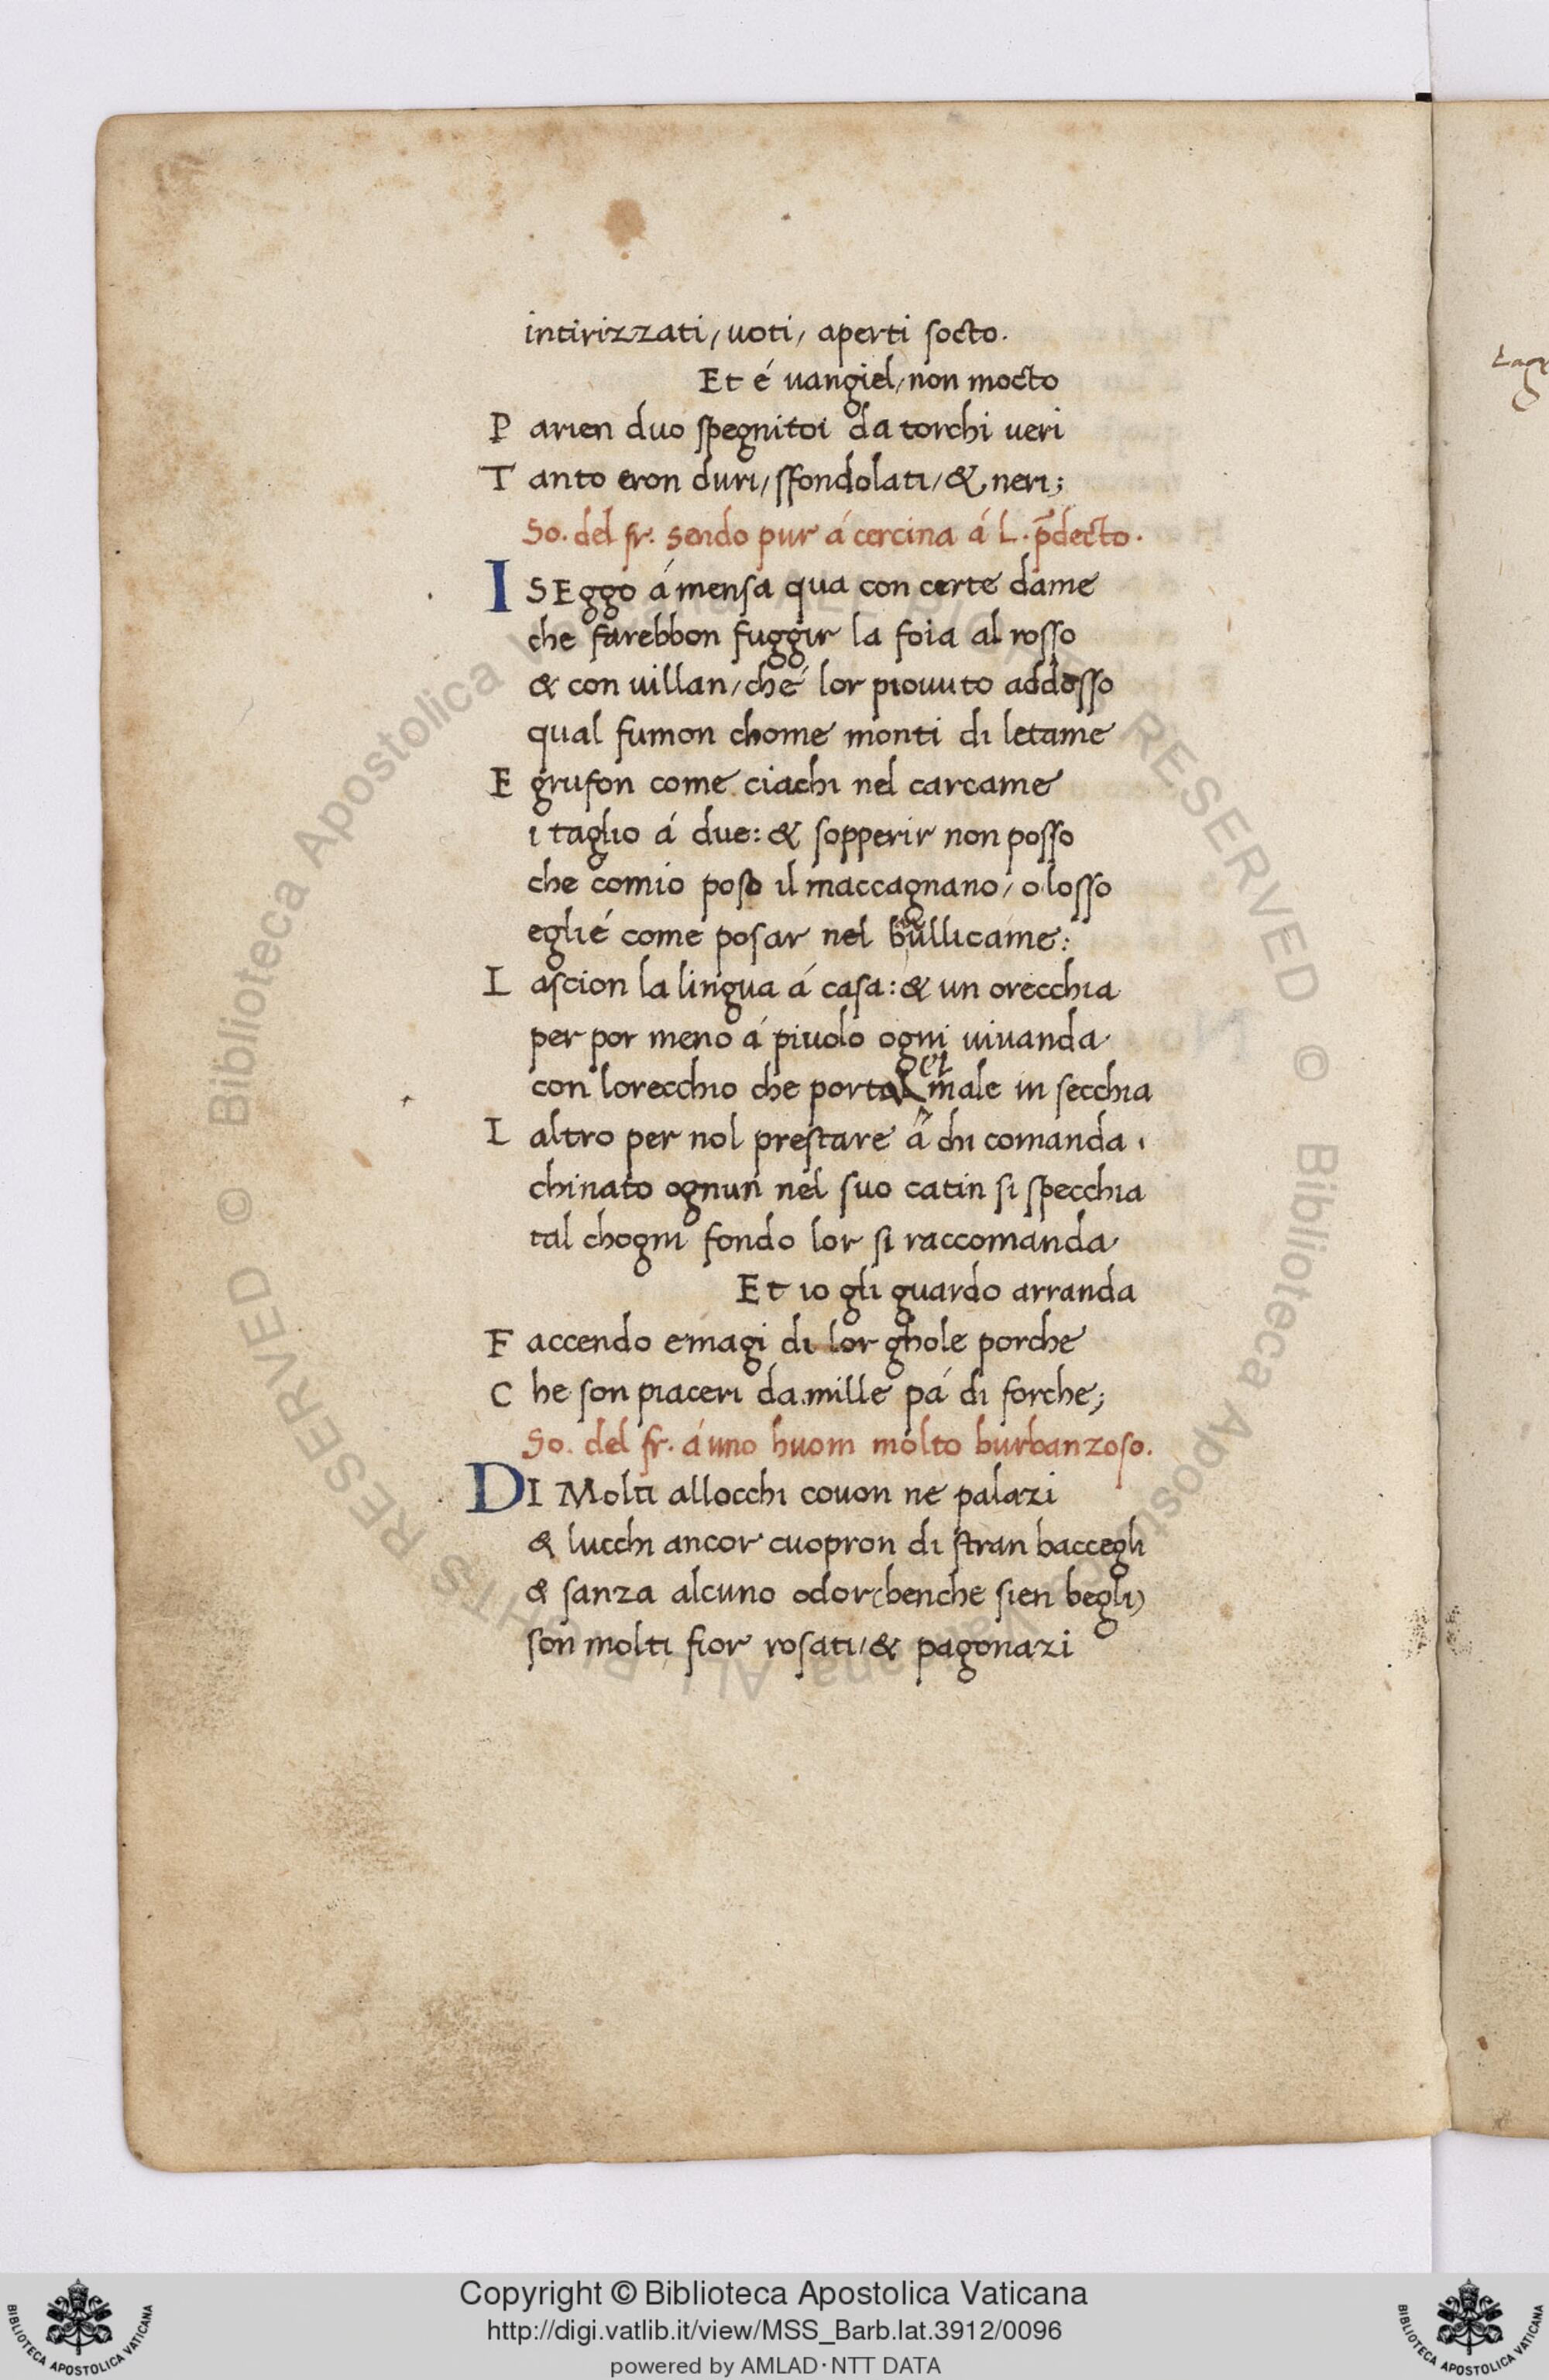 intirizzati/ uoti/ aperti socto.
Et é uangiel/ non mocto
P arien duo spegnitoi da torchi ueri
T anto eron duri/ sfondolati/ & neri;
So. del fr. sendo pur á cercina á L. p̄decto.
I SEggo á mensa qua con certe dame
che farebbon fuggir la foia al rosso
& con uillan/ che lor piouuto addosso
qual fumon chome monti di letame
E grufon come ciachi nel carcame
i taglio á due: & sopperir non posso
che comio poso il maccagnano/ o losso
eglié come posar nel bullicame:
L ascion la lingua á casa: & un orecchia
per por meno á piuolo ogni uiuanda
con lorecchio che male in secchia
L altro per nol prestare á chi comanda
chinato ognun nel suo catin si specchia
tal chogni fondo lor si raccomanda
Et io gli guardo arranda
F accendo emagi di lor ghole porche
C he son piaceri da mille pá di forche;
So. del fr. á uno huom molto burbanzoso.
DI Molti allocchi couon ne palazi
& lucchi ancor cuopron di stran baccegli
& sanza alcuno odor (benche sien begli)
son molti fior rosati/ & pagonazi
© Biblioteca Apostolica Vaticana ALL RIGHTS RESERVED © Biblioteca Apostolica Vaticana ALL RIGHTS RESERVED
Copyright © Biblioteca Apostolica Vaticana
http://digi.vatlib.it/view/MSS_Barb.lat.3912/0096
powered by AMLAD·NTT DATA
BIBLIOTECA APOSTOLICA VATICANA
BIBLIOTECA APOSTOLICA VATICANA